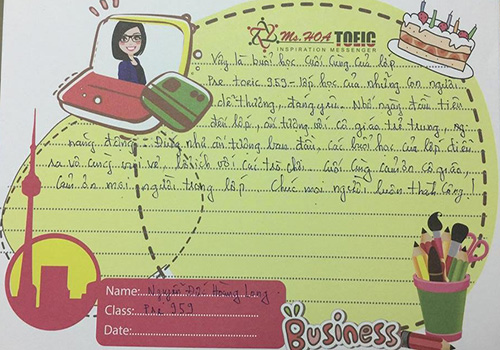 Ms. HOA TOEIC
INSPIRATION MESSENGER
Vậy là buổi học cuối cùng của lớp
Pre toeic 959 - lớp học của những con người
dễ thương, đáng yêu. Nhớ ngày đầu tiên
đến lớp, ấn tượng với cô giáo trẻ trung, 
năng động. Đúng như ấn tượng ban đầu, các buổi học của lớp diễn
ra vô cùng vui vẻ, với các trò chơi. Cuối cùng cảm ơn cô giáo,
cảm ơn mọi người trong lớp. Chúc mọi người luôn thành công!
Name: Nguyễn Hoàng Long
Class: Pre 959
Date:
Business